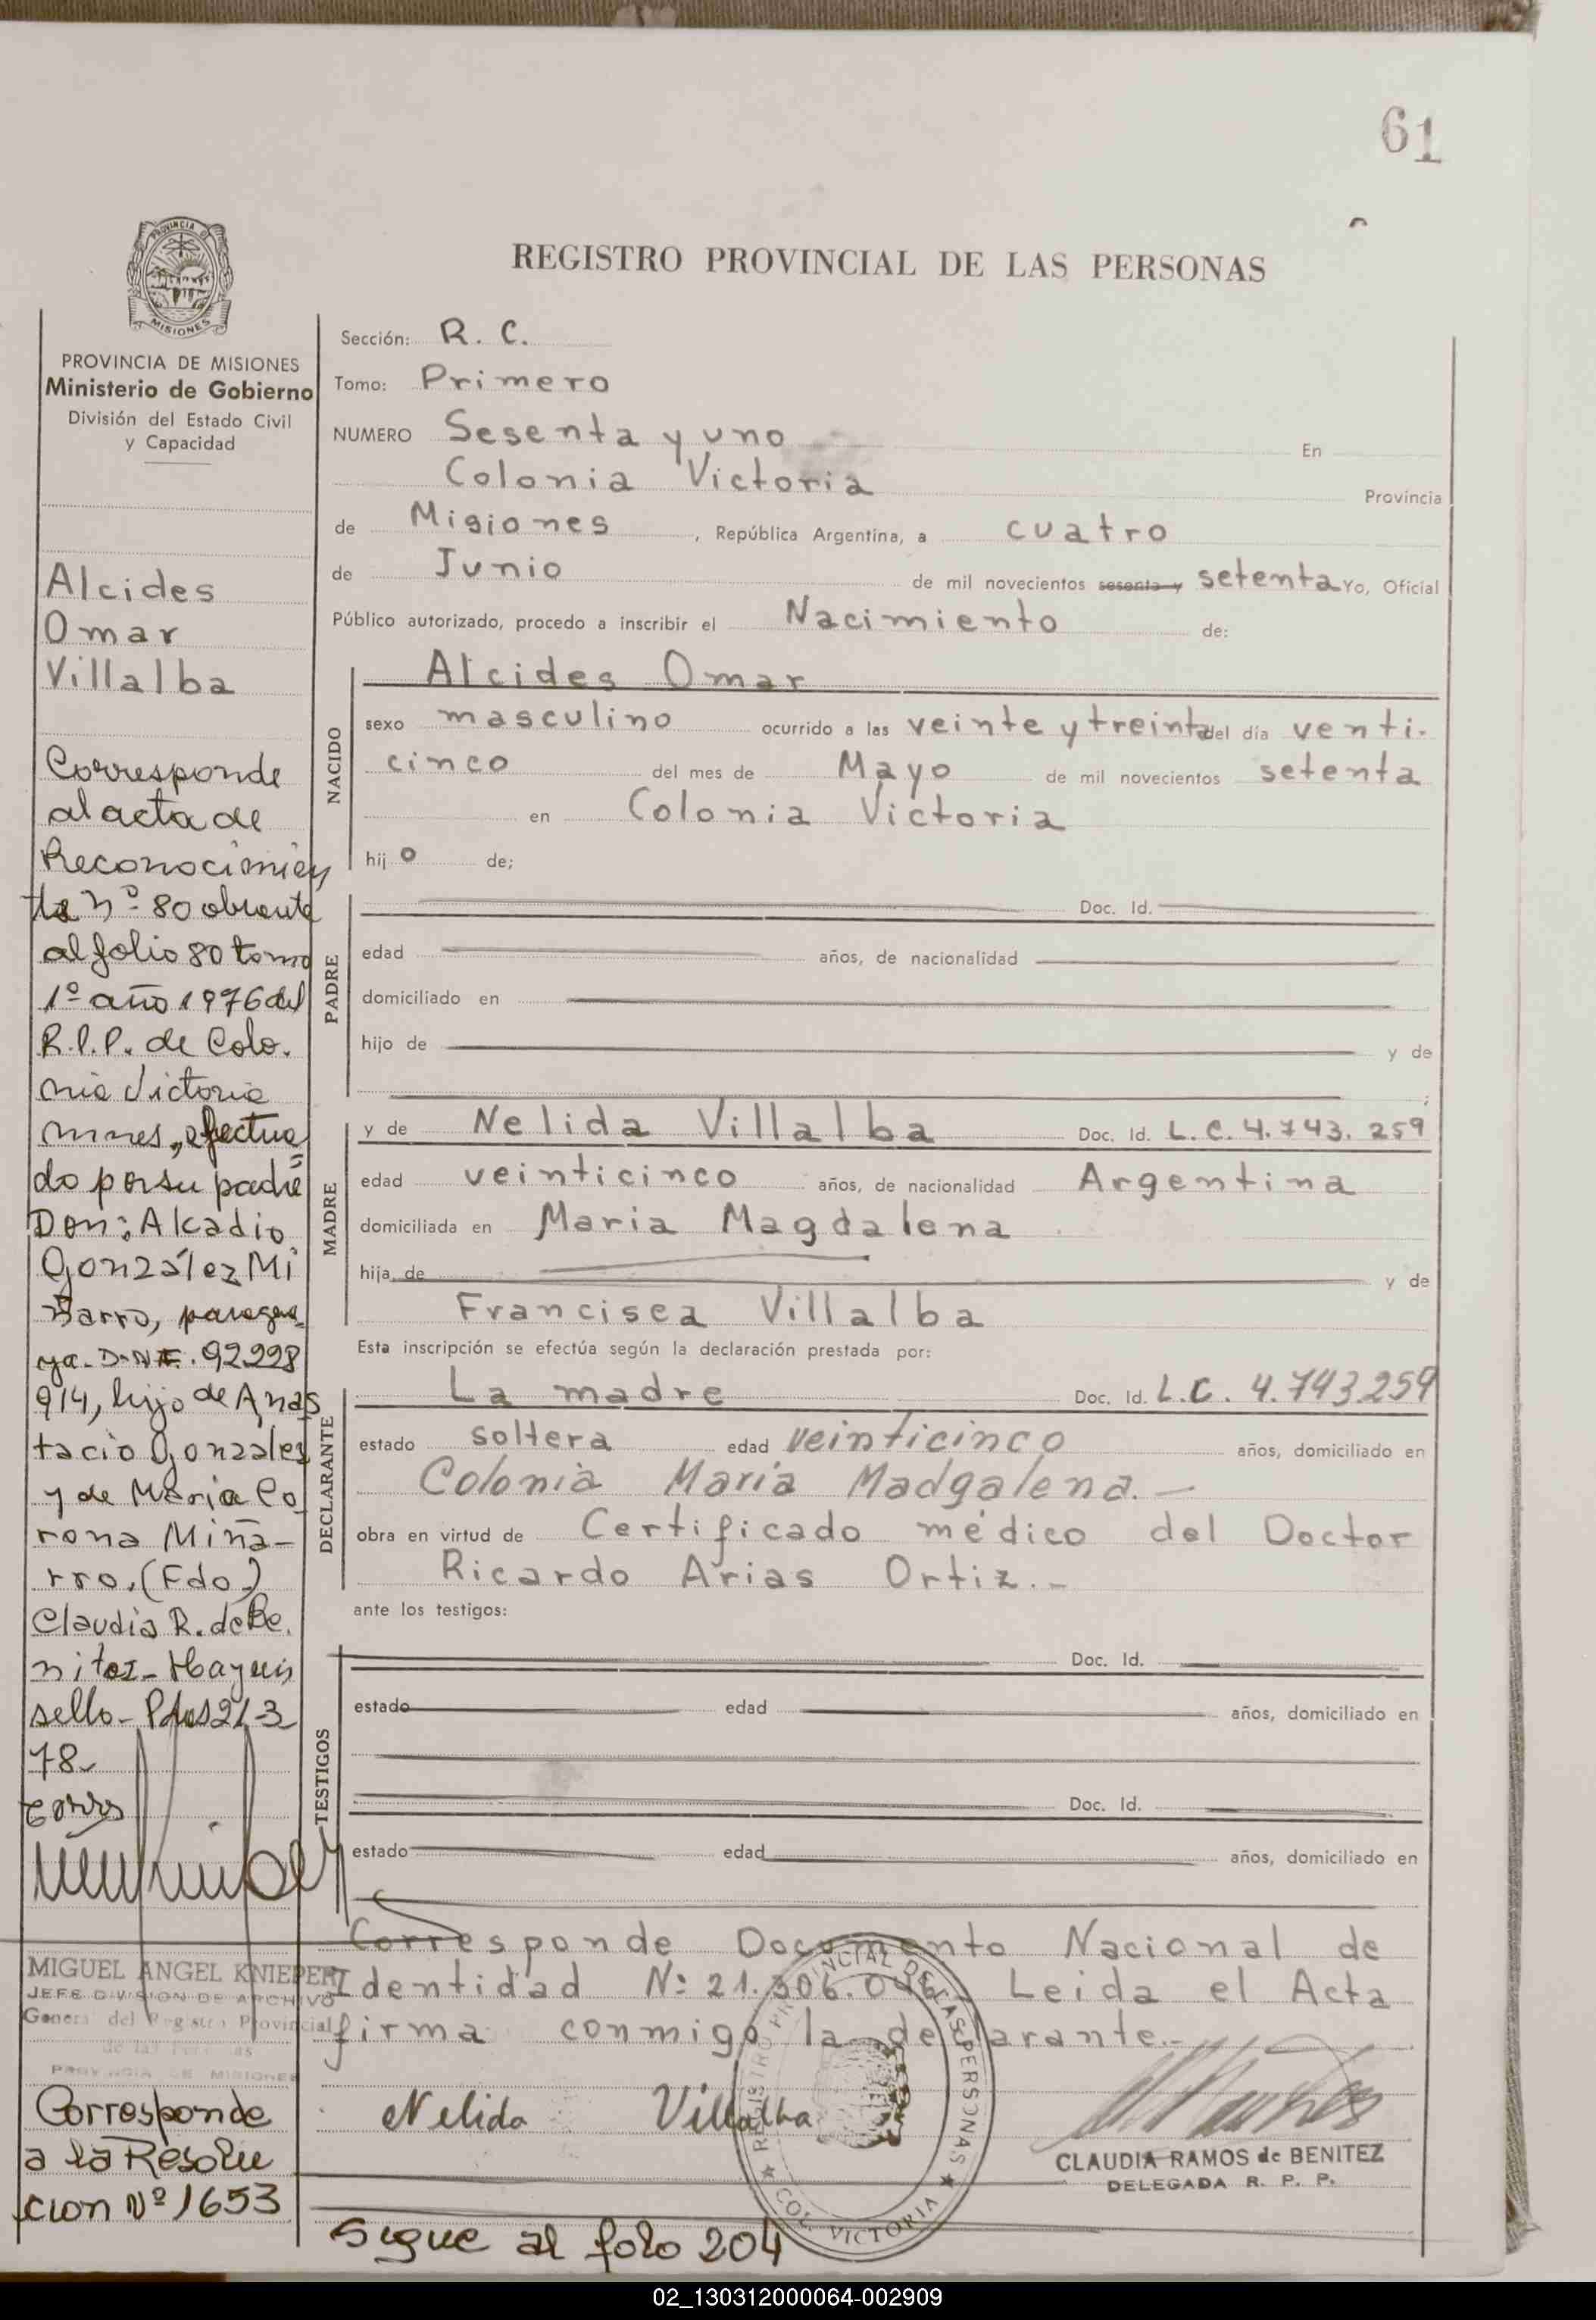 61
REGISTRO PROVINCIAL DE LAS PERSONAS
PROVINCIA DE
MISIONES
PROVINCIA DE MISIONES
Ministerio de Gobierno
División del Estado Civil
y Capacidad
Alcides
Omar
Villalba
Corresponde
al acta de
Reconocimien
to nº 80 obrante
al folio 80 tomo
1º año 1976 del
R.P.P. de Colo.
nia Victoria
mnes, efectua
do por su padre
Don: Alcadio
González Mi
ñarro, paragua
ya. D.N.I. 92228
914, hijo de Anas
tacio Gonzáles
y de Maria Co
rona Miña-
rro. (Fdo.)
Claudia R. de Be.
nitez - Hay un
sello - Pdas 21-3
78-
MIGUEL ANGEL KNIEPER
JEFE DIVISION DE ARCHIVO
General del Registro Provincial
de las Personas
PROVINCIA DE MISIONES
Corresponde
a la Resolu
cion Nº 1653
Sección: R. C.
Tomo: Primero
NUMERO Sesenta y uno En
Colonia Victoria Provincia
de Misiones, República Argentina, a cuatro
de Junio de mil novecientos sesenta y setenta Yo, Oficial
Público autorizado, procedo a inscribir el Nacimiento de:
NACIDO
Alcides Omar
sexo masculino ocurrido a las veinte y treinta del día venti-
cinco del mes de Mayo de mil novecientos setenta
en Colonia Victoria
hijo de;
PADRE
Doc. Id.
edad años, de nacionalidad
domiciliado en
hijo de y de
;
MADRE
y de Nelida Villalba Doc. Id. L.C. 4.743.259
edad veinticinco años, de nacionalidad Argentina
domiciliada en Maria Magdalena
hija de y de
Francisca Villalba
Esta inscripción se efectúa según la declaración prestada por:
DECLARANTE
La madre Doc. Id. L.C. 4.743.259
estado soltera edad veinticinco años, domiciliado en
Colonia Maria Madgalena.-
obra en virtud de Certificado médico del Doctor
Ricardo Arias Ortiz.-
ante los testigos:
TESTIGOS
Doc. Id.
estado edad años, domiciliado en
Doc. Id.
estado edad años, domiciliado en
Corresponde Documento Nacional de
Identidad Nº 21.306. Leida el Acta
firma conmigo la declarante.-
Nelida Villalba
REGISTRO PROVINCIAL DE LAS PERSONAS
COL. VICTORIA
CLAUDIA RAMOS de BENITEZ
DELEGADA R. P. P.
Sigue al folo 204
02_130312000064-002909